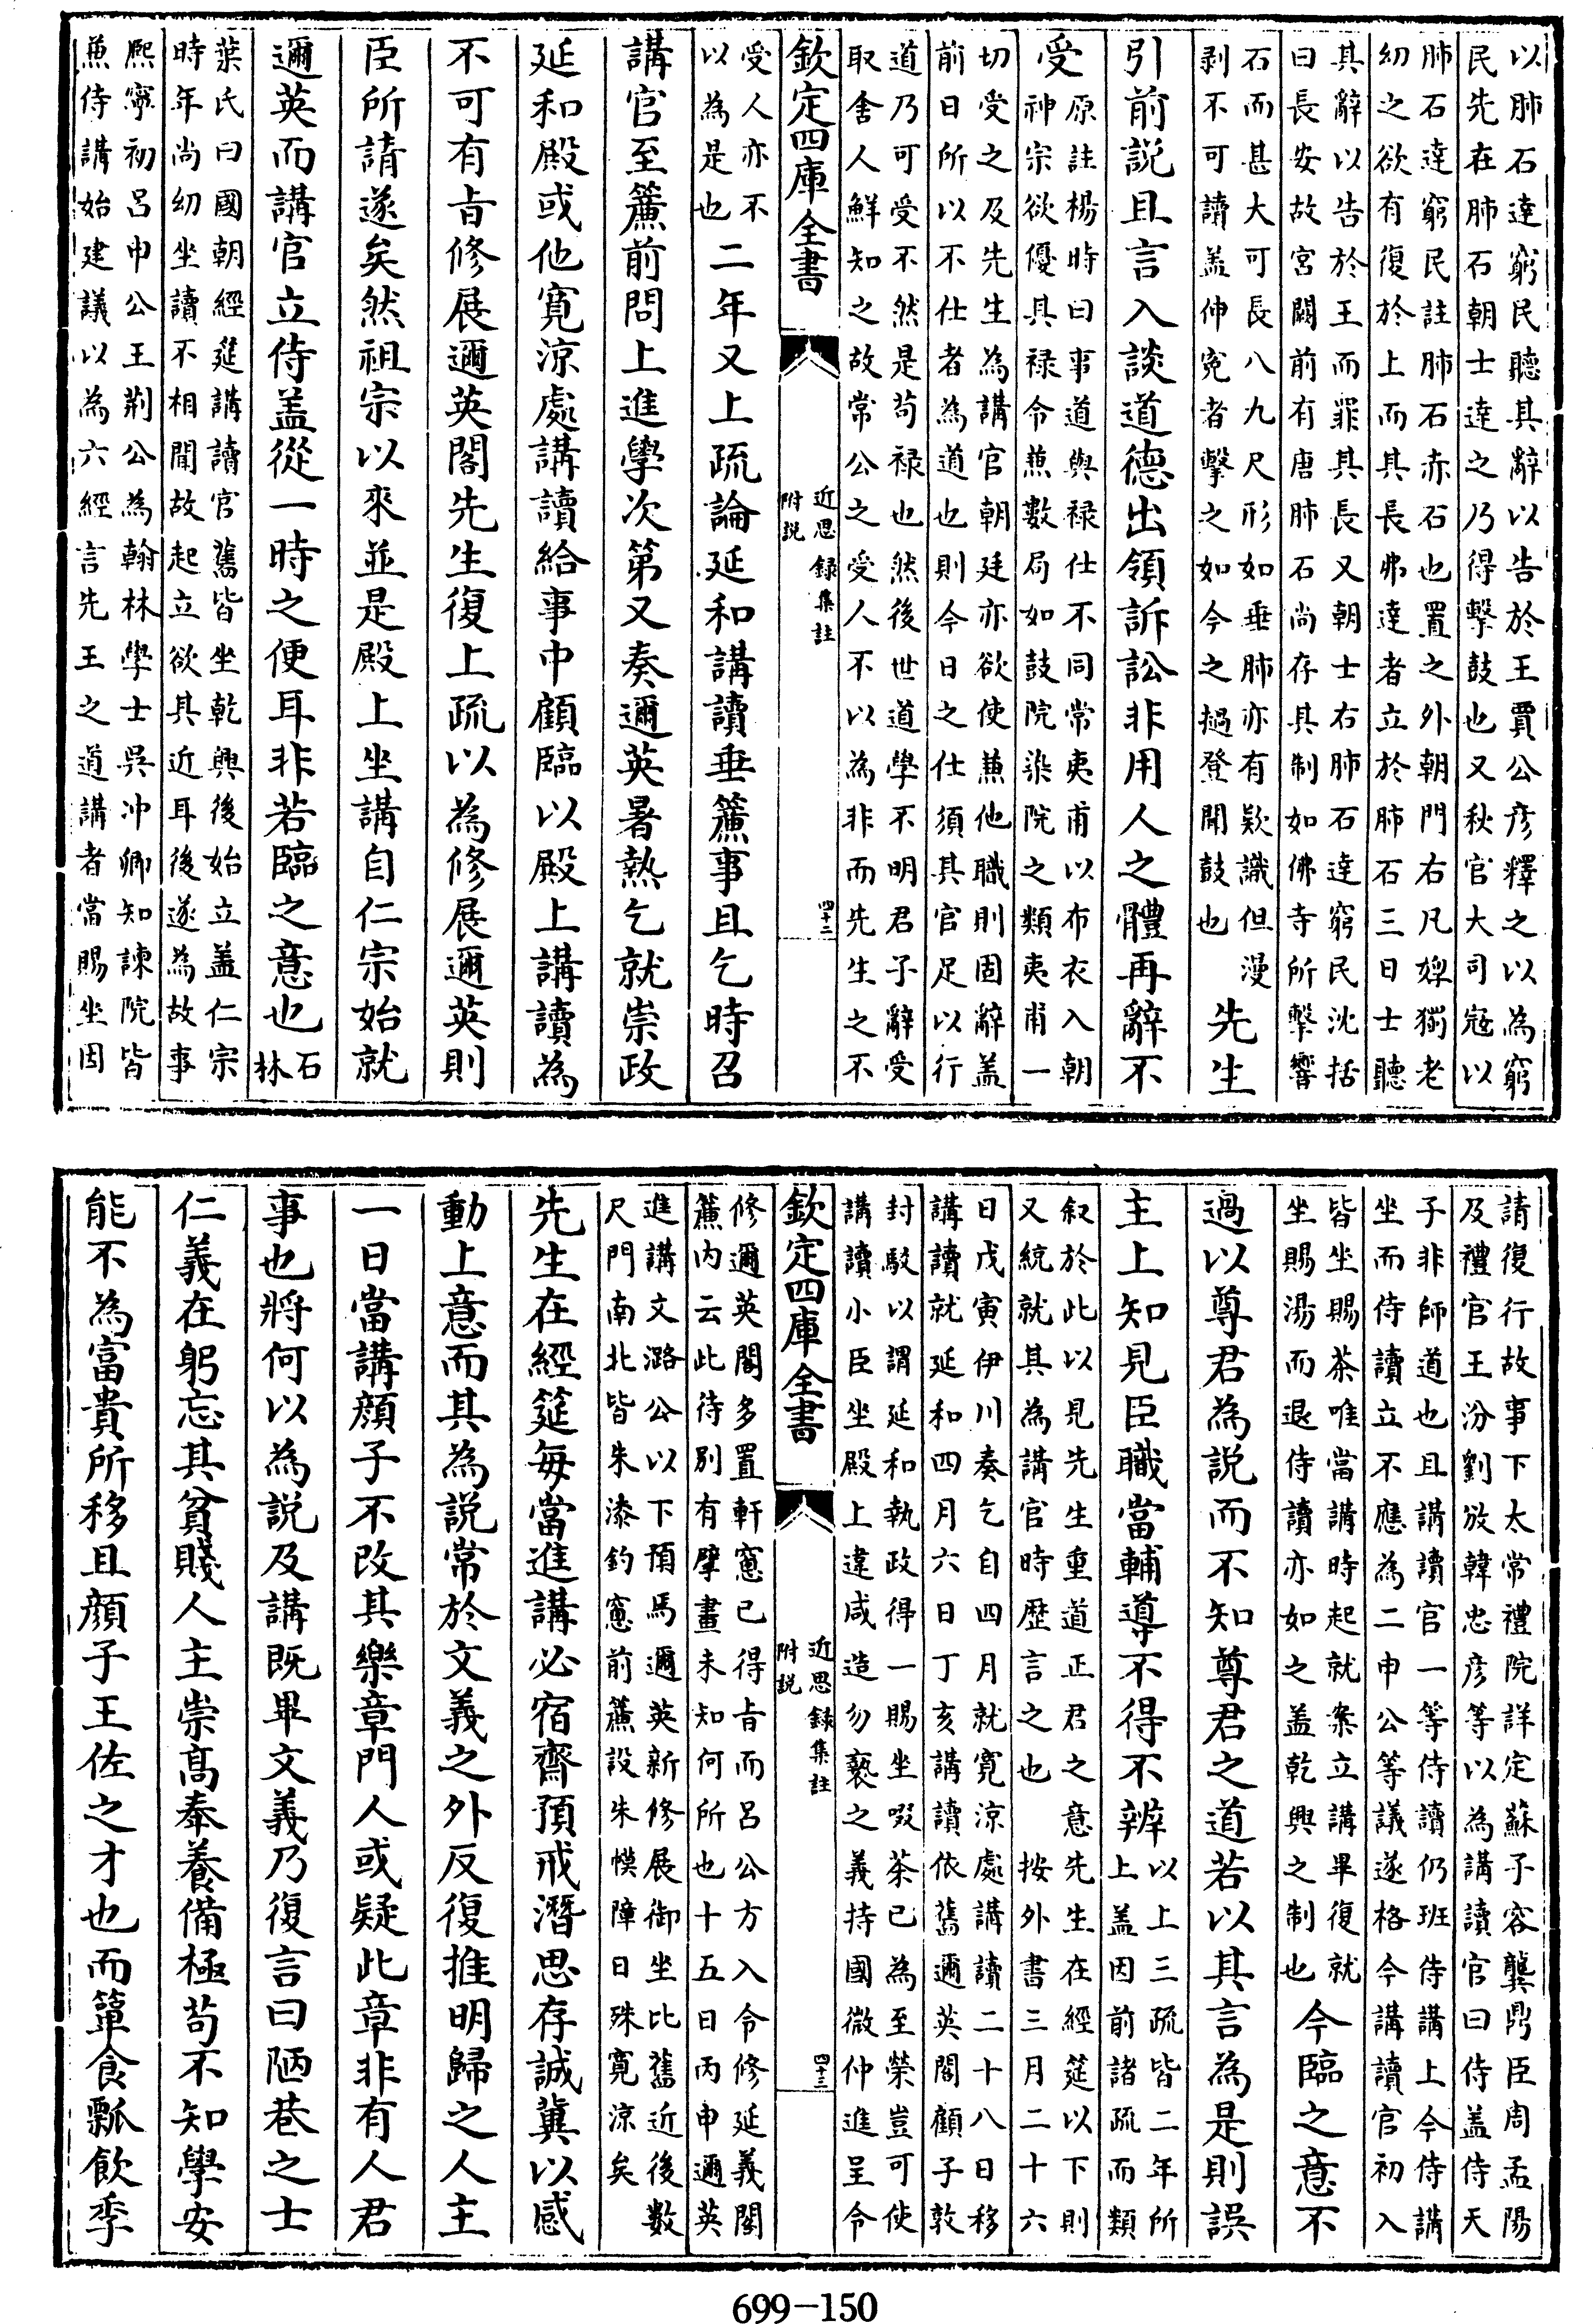 以肺石達窮民聽其辭以告於王賈公彦釋之以為窮
民先在肺石朝士達之乃得擊鼓也又秋官大司寇以
肺石達窮民註肺石赤石也置之外朝門右凡惸獨老
幼之欲有復於上而其長弗達者立於肺石三日士聽
其辭以告於王而罪其長又朝士右肺石達窮民沈括
曰長安故宮闕前有唐肺石尚存其制如佛寺所擊響
石而甚大可長八九尺形如垂肺亦有欵識但漫
剥不可讀盖伸寃者擊之如今之撾登聞鼓也
先生
引前説且言入談道德出領訴訟非用人之體再辭不
受
原註楊時曰事道與禄仕不同常夷甫以布衣入朝
神宗欲優其禄令兼數局如鼓院染院之類夷甫一
切受之及先生為講官朝廷亦欲使兼他職則固辭盖
前日所以不仕者為道也則今日之仕須其官足以行
道乃可受不然是苟禄也然後世道學不明君子辭受
取舍人鮮知之故常公之受人不以為非而先生之不
欽定四庫全書
近思録集註
附説
四十二
受人亦不
以為是也
二年又上疏論延和講讀垂簾事且乞時召
講官至簾前問上進學次第又奏邇英暑熱乞就崇政
延和殿或他寛涼處講讀給事中顧臨以殿上講讀為
不可有㫖修展邇英閣先生復上疏以為修展邇英則
臣所請遂矣然祖宗以來並是殿上坐講自仁宗始就
邇英而講官立侍盖從一時之便耳非若臨之意也
石
林
葉氏曰國朝經筵講讀官舊皆坐乾興後始立盖仁宗
時年尚幼坐讀不相聞故起立欲其近耳後遂為故事
熈寧初吕申公王荆公為翰林學士吳冲卿知諫院皆
兼侍講始建議以為六經言先王之道講者當賜坐因
請復行故事下太常禮院詳定蘇子容龔鼎臣周孟陽
及禮官王汾劉攽韓忠彦等以為講讀官曰侍盖侍天
子非師道也且講讀官一等侍讀仍班侍講上今侍講
坐而侍讀立不應為二申公等議遂格今講讀官初入
皆坐賜茶唯當講時起就案立講畢復就
坐賜湯而退侍讀亦如之盖乾興之制也
今臨之意不
過以尊君為説而不知尊君之道若以其言為是則誤
主上知見臣職當輔導不得不辨
以上三疏皆二年所
上盖因前諸疏而類
叙於此以見先生重道正君之意
又統就其為講官時歴言之也
按外書三月二十六
先生在經筵以下則
日戊寅伊川奏乞自四月就寛涼處講讀二十八日移
講讀就延和四月六日丁亥講讀依舊邇英閣顧子敦
封駁以謂延和執政得一賜坐啜茶已為至榮豈可使
講讀小臣坐殿上違咸造勿褻之義持國微仲進呈令
欽定四庫全書
近思録集註
附説
四十三
修邇英閣多置軒䆫已得㫖而吕公方入令修延義閣
簾内云此待别有擘畫未知何所也十五日丙申邇英
進講文潞公以下預焉邇英新修展御坐比舊近後數
尺門南北皆朱漆釣䆫前簾設朱幙障日殊寛涼矣
先生在經筵每當進講必宿齋預戒潛思存誠冀以感
動上意而其為説常於文義之外反復推明歸之人主
一日當講顔子不改其樂章門人或疑此章非有人君
事也將何以為説及講既畢文義乃復言曰陋巷之士
仁義在躬忘其貧賤人主崇髙奉養備極苟不知學安
能不為富貴所移且顔子王佐之才也而簞食瓢飲季
699-150